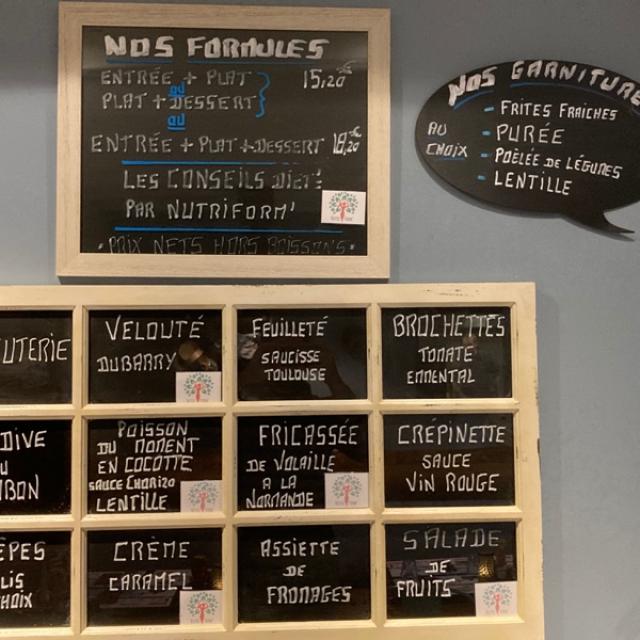 NOS FORMULES
ENTRÉE + PLAT
OU
PLAT + DESSERT
15,20€
OU
ENTRÉE + PLAT + DESSERT 18,20€
LES CONSEILS DIET:
PAR NUTRIFORM'
• PRIX NETS HORS BOISSONS •
NOS GARNITURE
AU
CHOIX
- FRITES FRAICHES
- PURÉE
- POÊLÉE DE LÉGUMES
- LENTILLE
UTERIE
VELOUTÉ
DUBARRY
FEUILLETÉ
SAUCISSE
TOULOUSE
BROCHETTES
TOMATE
EMMENTAL
DIVE
U
BON
POISSON
DU MOMENT
EN COCOTTE
SAUCE CHORIZO
LENTILLE
FRICASSÉE
DE VOLAILLE
A LA
NORMANDE
CRÉPINETTE
SAUCE
VIN ROUGE
ÊPES
LIS
HOIX
CRÈME
CARAMEL
ASSIETTE
DE
FROMAGES
SALADE
DE
FRUITS